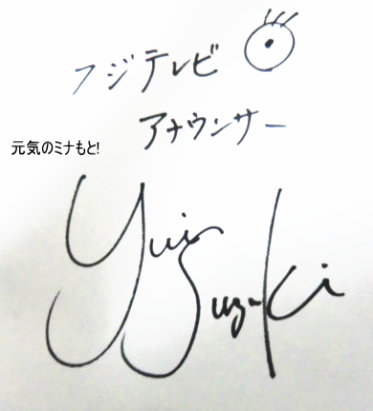 フジテレビ
アナウンサー
元気のミナもと!
Yui
Suzuki